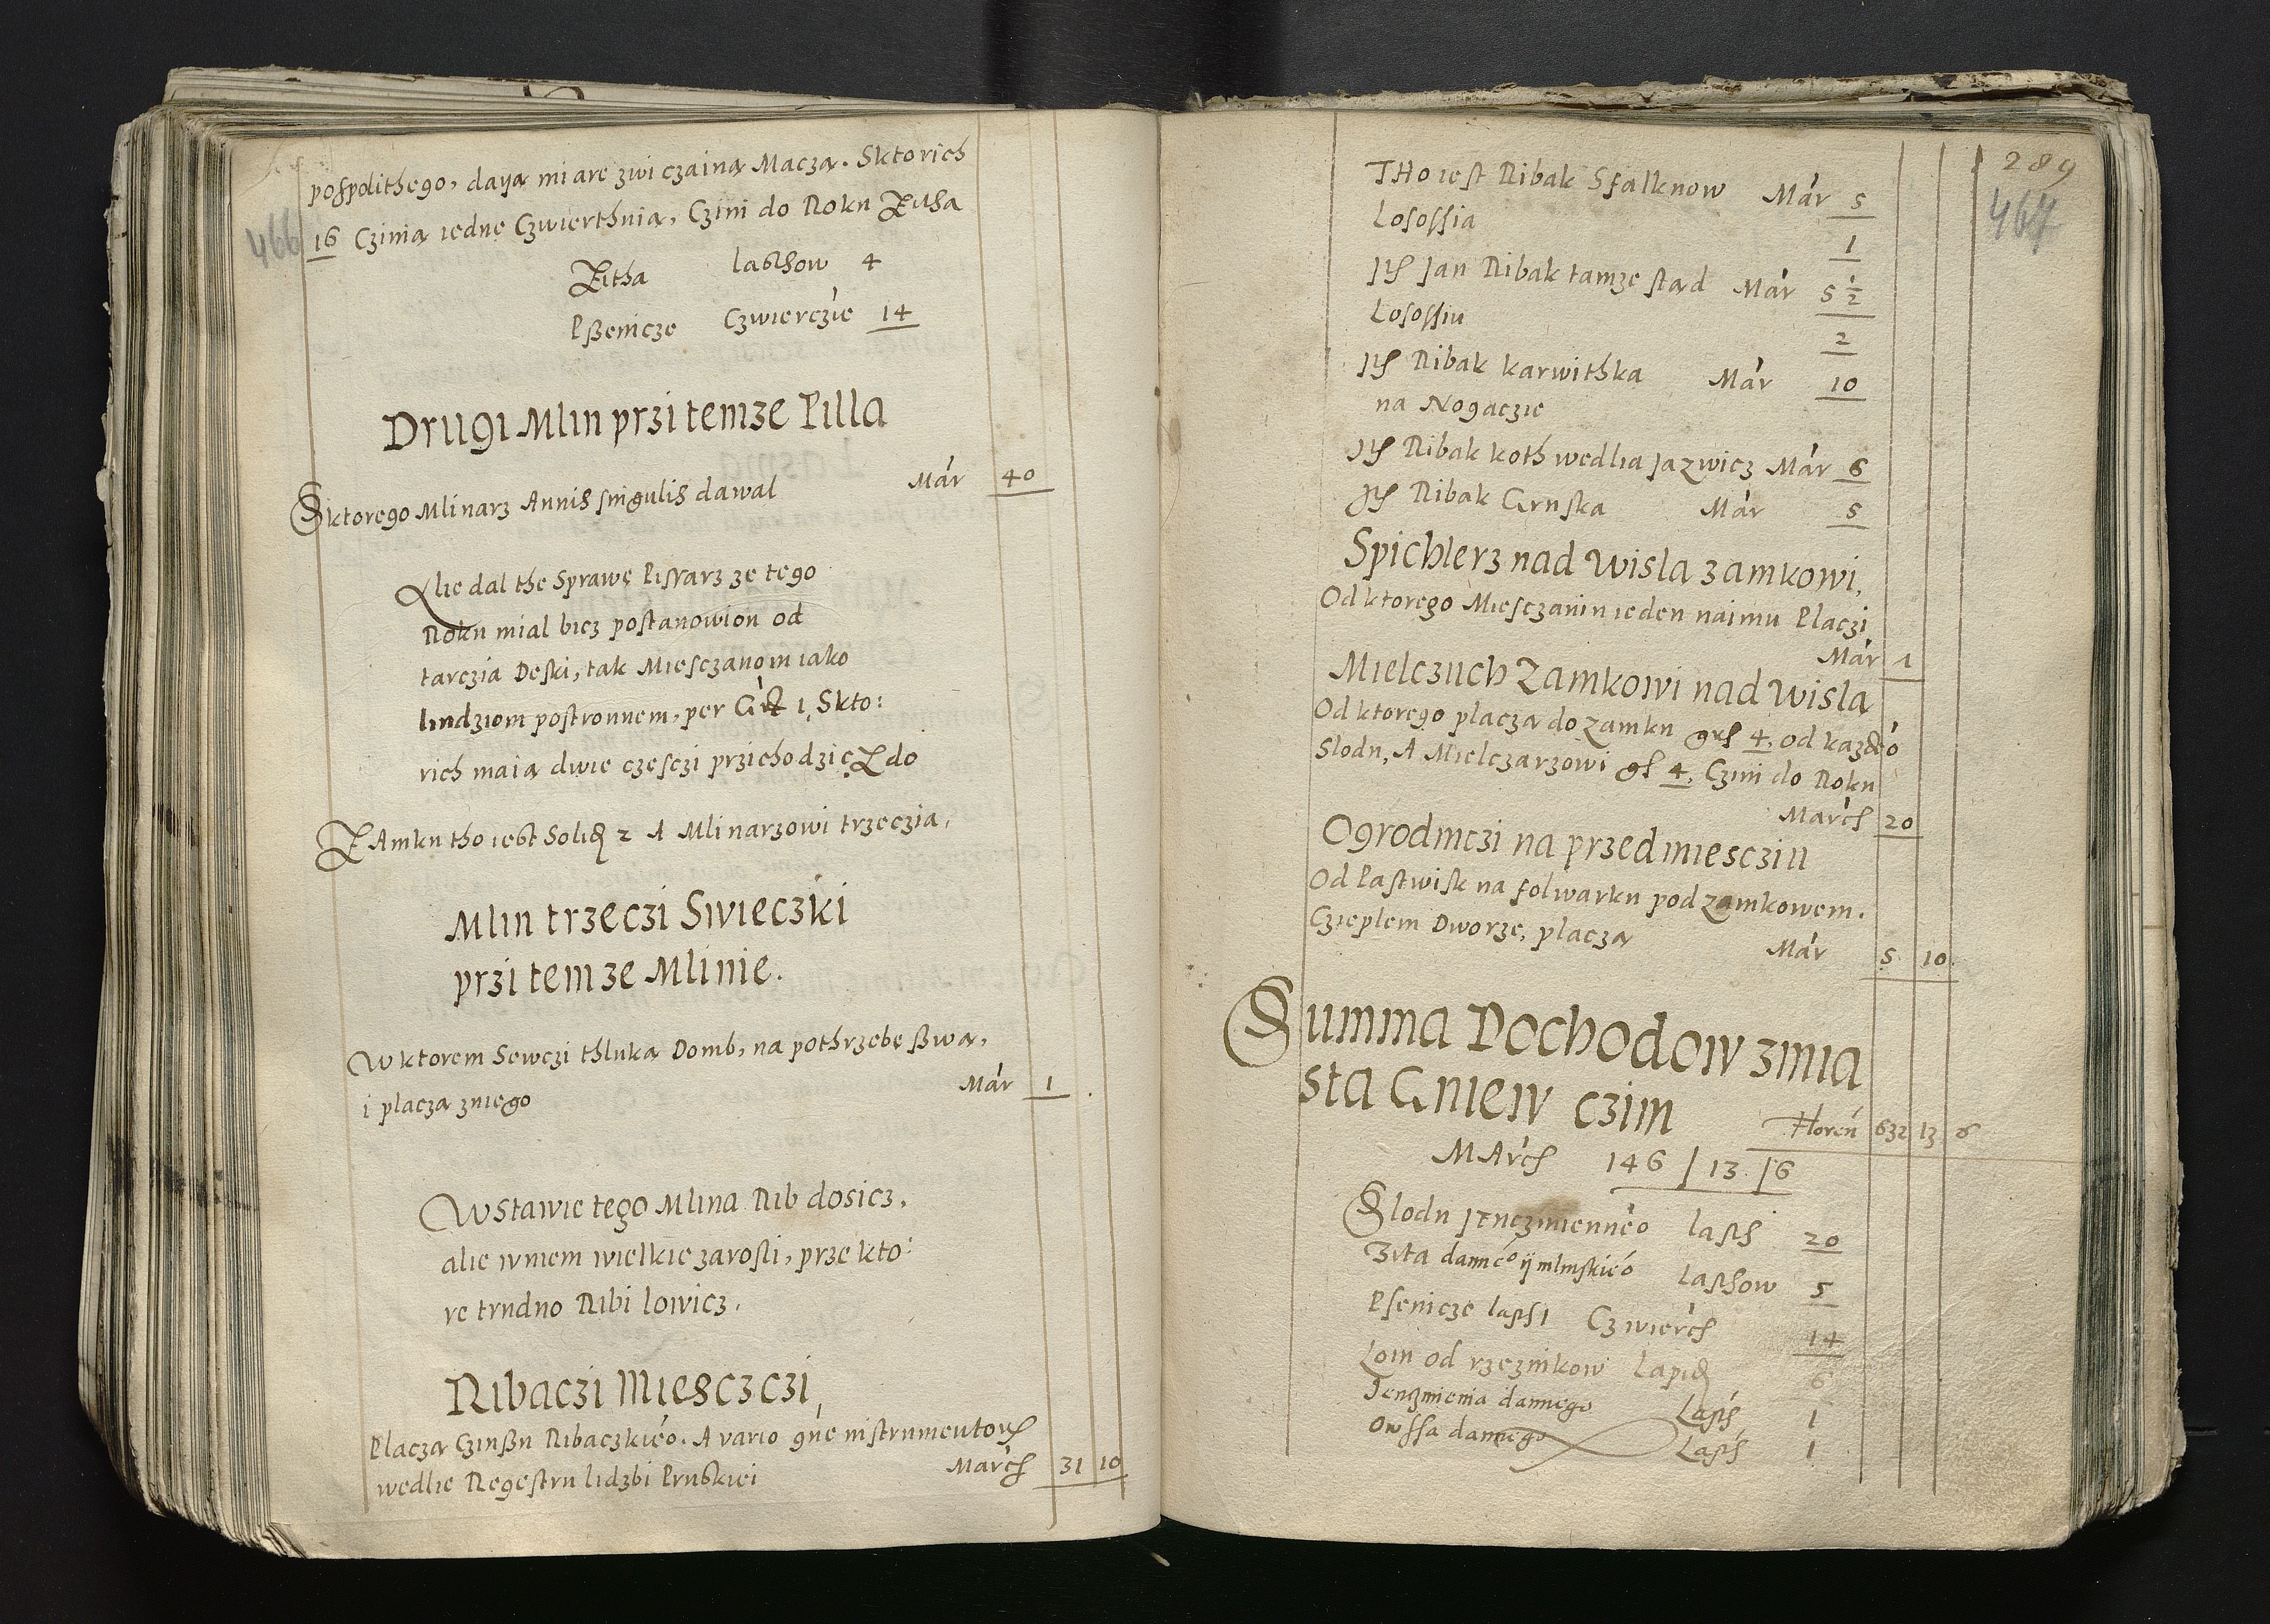 pospolithego, dayą miarę zwiczainą Maczą. Sktorich
466 16 Czinią iednę Czwierthnią, Czini do Roku Zitha
Zitha lasthow 4
Pszenicze Czwierczie 14
Drugi Mlin przi temze Pilla
Sktorego Mlinarz Annis singulis dawal Mar 40
Alie dal the Sprawę Pissarz ze tego
Roku mial bicz postanowion od
tarczia Deski, tak Miesczanom iako
ludziom postronnem, per Grß 1, Skto:
rich maią dwie czesczi przichodzicz do
ZAmku tho iest Solid 2 A Mlinarzowi trzeczia,
Mlin trzeczi Swieczki
przi temze Mlinie.
W ktorem Sewczi thluką Domb, na pothrzebę szwą,
i placzą zniego Mar 1
W Stawie tego Mlina Rib dosicz,
alie wniem wielkie zarosli, prze kto:
re trudno Ribi lowicz,
Ribaczi Miesczczi,
Placzą Czinszu Ribaczkieo. A vario gne instrumentorum
wedlie Regestru lidzbi Pruskiei March 31 10
289
467
THo iest Ribak Sfalknow Mar 5
Lososia 1
Jts Jan Ribak tamze stąd Mar 5 1/2
Lososiu 2
Jts Ribak karwithka Mar 10
na Nogaczie
Jts Ribak koth wedlia Jazwicz Mar 6
Jts Ribak Gruska Mar 5
Spichlerz nad Wislą zamkowi,
Od ktorego Miesczanin ieden naimu Placzi
Mar 1
Mielczuch Zamkowi nad Wislą
Od ktorego placzą do Zamku grs 4, od kazdeo
Slodu, A Mielczarzowi gs 4, Czini do Roku
March 20
Ogrodniczi na przedmiescziu
Od Pastwisk na folwarku pod Zamkowem.
Czieplem Dworze, placzą Mar 5 10
Summa Dochodow zmia
sta Gniew czim
Floren 632 13 6
MArch 146 / 13 / 6
Slodu Jęnczmienneo lasth 20
Zita danneo ij mlinskieo Lasthow 5
Psenicze lasth 1 Czwierch 14
Loiu od rzeznikow Lapid 6
Jenczmienia dannego Lasth 1
Owssa dannego Lasth 1